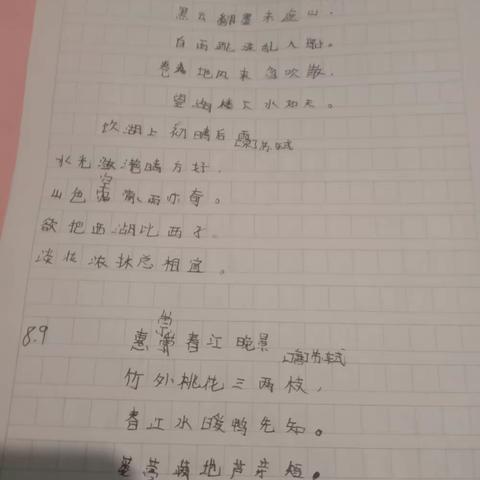 黑云翻墨未遮山，
白雨跳珠乱入船。
卷地风来忽吹散，
望湖楼下水如天。
饮湖上初晴后雨 [宋]苏轼
水光潋滟晴方好，
山色空蒙雨亦奇。
欲把西湖比西子，
淡妆浓抹总相宜。
8.9
惠崇春江晚景 [宋]苏轼
竹外桃花三两枝，
春江水暖鸭先知。
蒌蒿满地芦芽短。